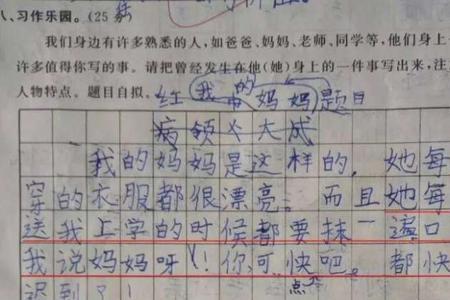 八、习作乐园。(25分)
我们身边有许多熟悉的人,如爸爸、妈妈、老师、同学等,他们身上
许多值得你写的事。请把曾经发生在他(她)身上的一件事写出来,注
人物特点。题目自拟。
我的妈妈)题目
我的妈妈是这样的,她每
穿的衣服都很漂亮。而且她每
送我上学的时候都要抹一 口
我说妈妈呀!你可快吧。都快
点
迟到?!